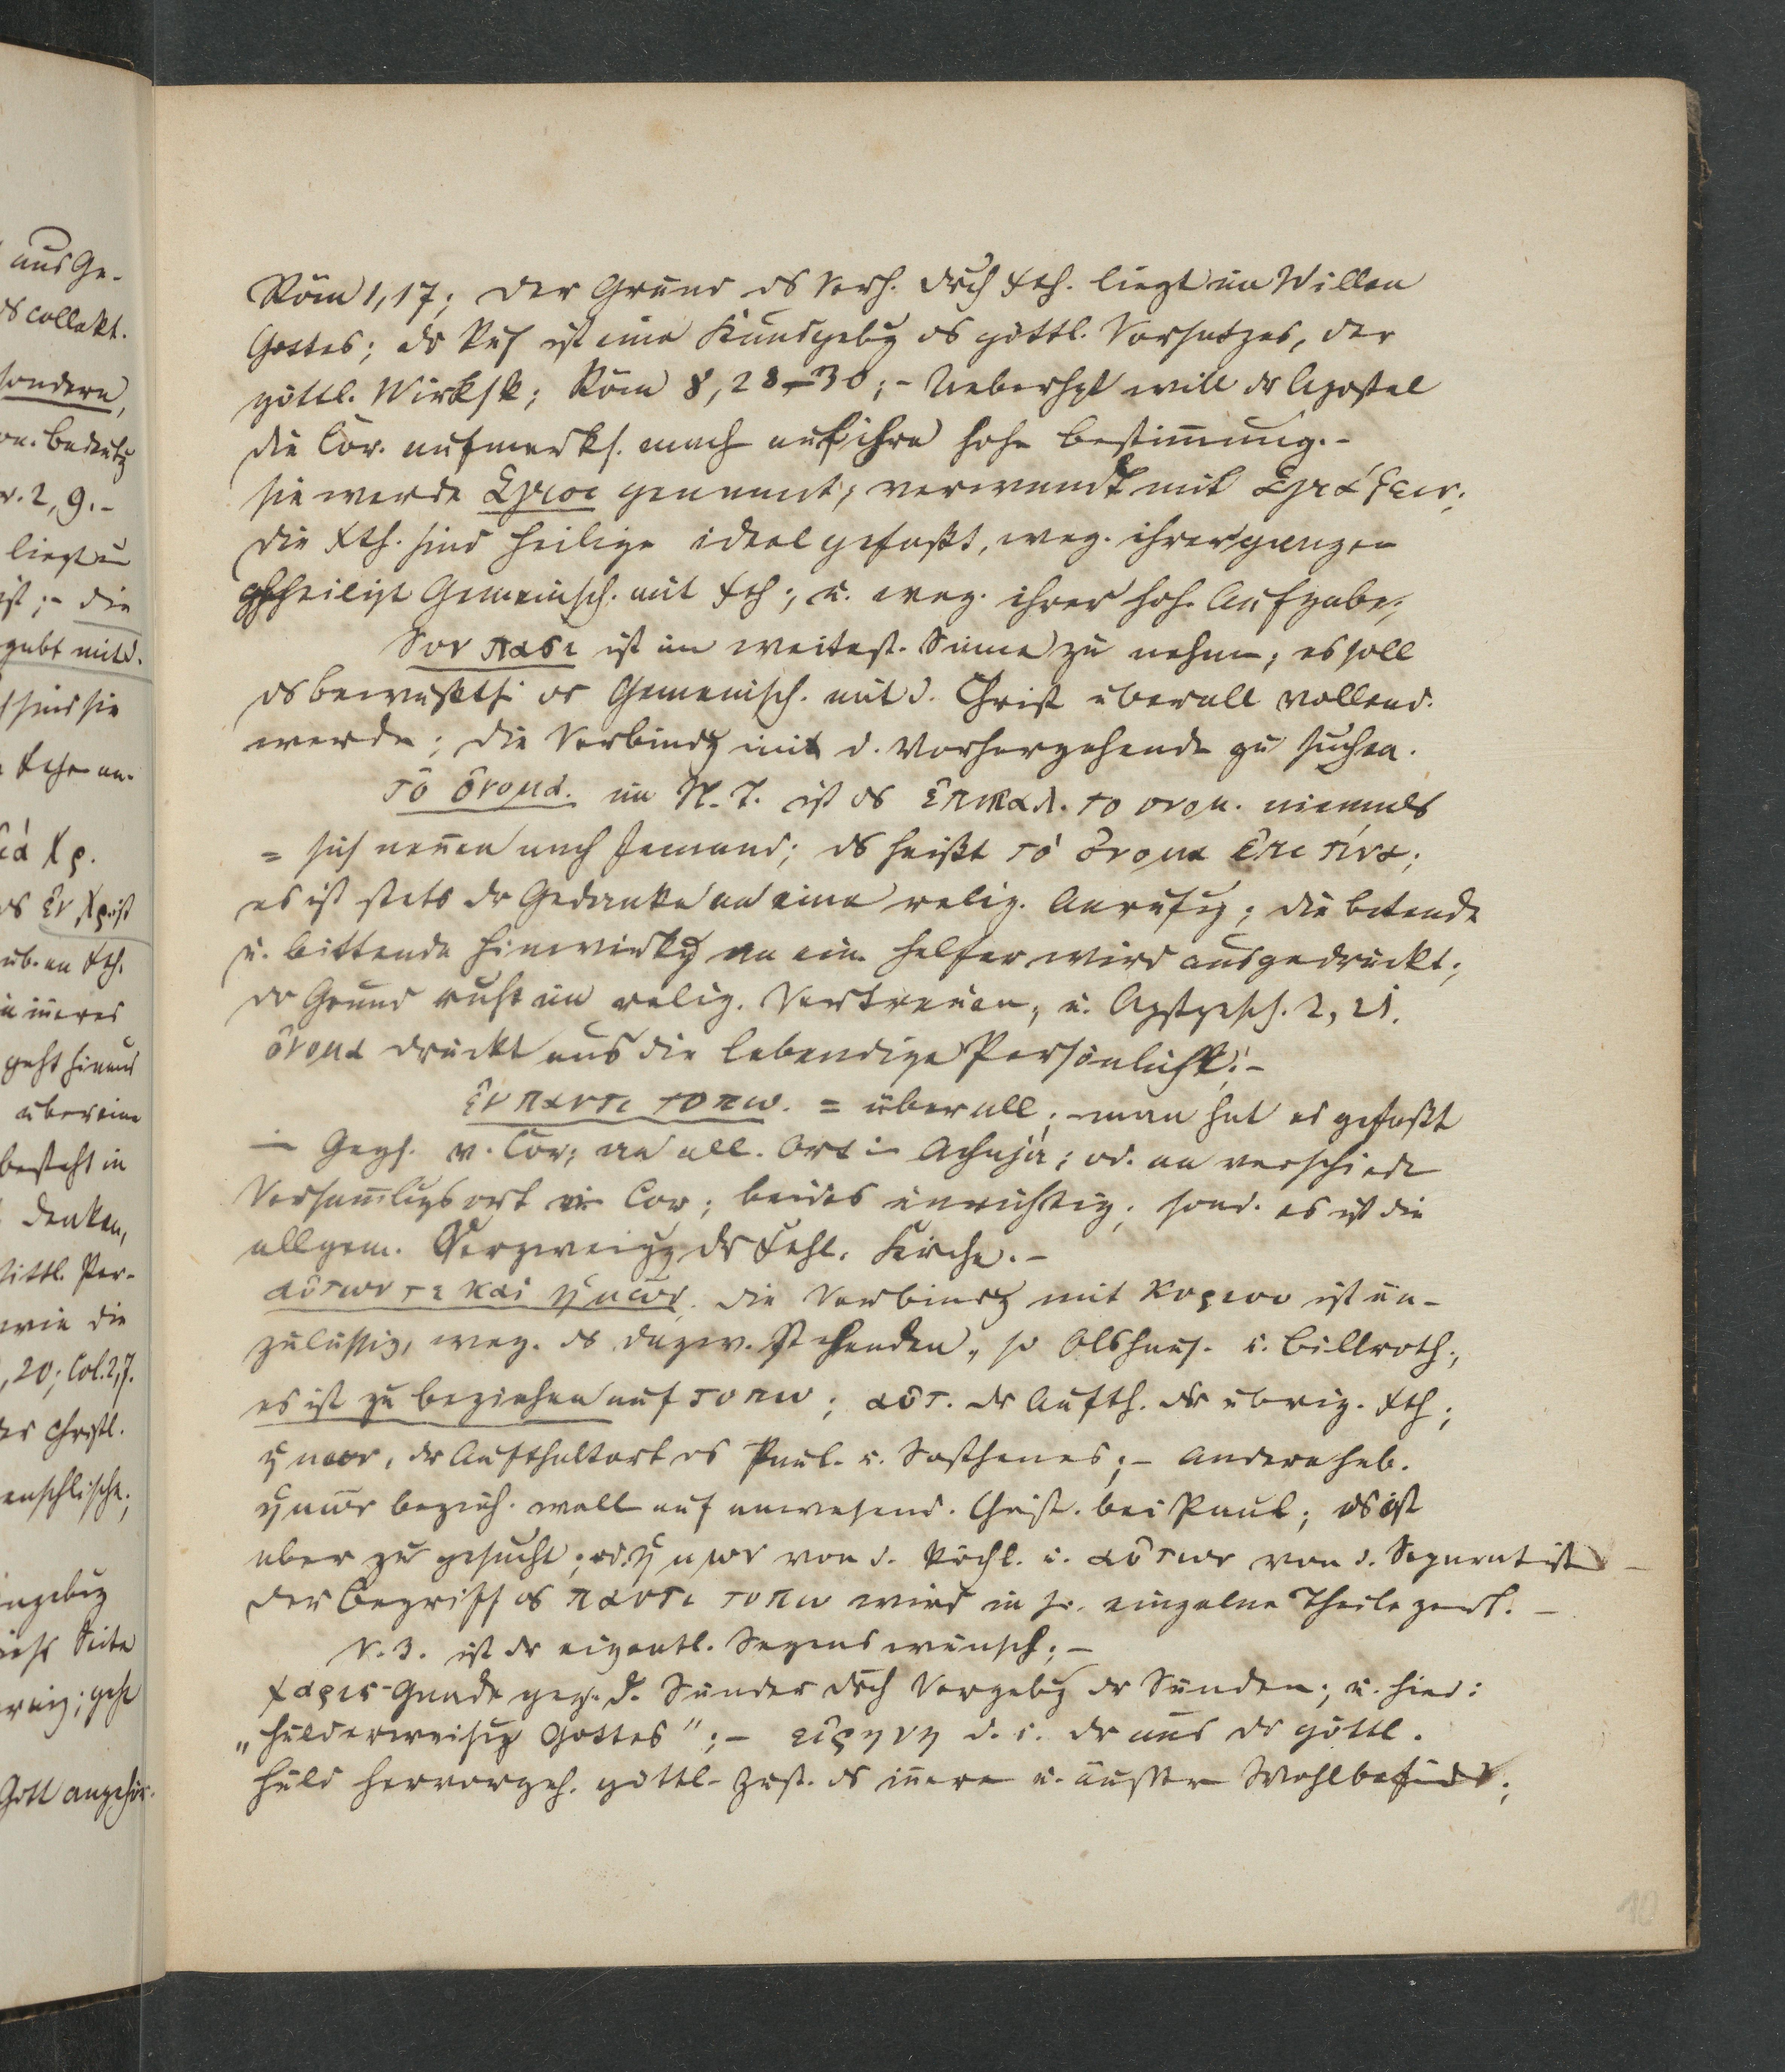 aus Ge-
ds collekt.
sondern,
Bedeutg
2, 9. -
liegt
ist; - die
gabt mit d.
sind sie
Xp.
ds ἐν Χριστ
üb. an Xth.
inneres
geht hinaus
über eine
besteht in
denken,
sittl. Per-
wie die
, 20; Col. 2, 7.
der christl.
menschlische;
Seite
Gott angehör.
Röm 1, 17; der Grund ds Verh. dch Xth. liegt im Willen
Gottes; ds Ruf ist eine Kundgebg ds göttl. Vorsatzes, der
göttl. Wirksk; Röm 8, 28-30; - Ueberhpt will dr Apostel
die Cor. aufmerks. mach auf ihre hohe Bestim̄ung. -
sie werde ἁγιοι genannt, verwandt mit ἁγιάζειν;
die Xth. sind heilige ideal gefaßt, weg. ihrer ganzen
geheiligt Gemeinsch. mit Xth; u. weg. ihrer hoh. Aufgabe;
Συν πασι ist im weitest. Sinne zu nehm, es soll
ds bewußts. dr Gemeinsch. mit d. Christ überall vollend.
werde; die Verbindg mit d. Vorhergehende zu suchen.
τὸ ὄνομα. im N. T. ist ds ἐπικαλ. το ονομ. niemals
= sich nen̄en nach Jemand; ds heißt τὸ ὄνομα ἐπι τινα;
es ist stets dr Gedanke an eine relig. Anrufg; die betende
u. bittende hinwirkg an ein. Helfer wird ausgedrückt;
dr Grund ruht im relig. Vertrauen, u. Apstgesch. 2, 21.
ὄνομα drückt aus die lebendige Persönlichk. -
ἐν παντι τοπω. = überall; - man hat es gefaßt
in Gegs. v. Cor; an all. Ort in Achaja; od. an verschiede
Versam̄lgsort in Cor; beides unrichtig; sond. es ist die
allgem. Verzweigg dr Xchl. Kirche. -
αὐτων τε καὶ ἡμων. die Verbindg mit Κυριου ist un-
zulässig, weg. ds dazw. stehenden, so Olshaus. u. Billroth;
es ist zu beziehen auf τοπω; αὐτ. dr Aufth. dr übrig. Xth;
ἡμων, dr Aufthaltort ds Paul. u. Sosthenes; - Andere hab.
ἡμων bezieh. woll auf anwesend. Christ. bei Paul; ds ist
aber zu gesucht; od. ἡμων von d. kirchl. u. αὐτων von d. Separatist -
der Begriff ds παντι τοπω wird in sr. einzelne Theile zerl. -
V. 3. ist dr eigentl. Segenswunsch; -
χαρις Gnade geg. d. Sünder dch Vergebg dr Sünden; u. hier:
„Hulderweisg Gottes"; - εἰρηνη d. i. dr aus dr göttl.
Huld hervorgeh. göttl. Zust. ds in̄ere u. äußere Wohlbefinds;
10